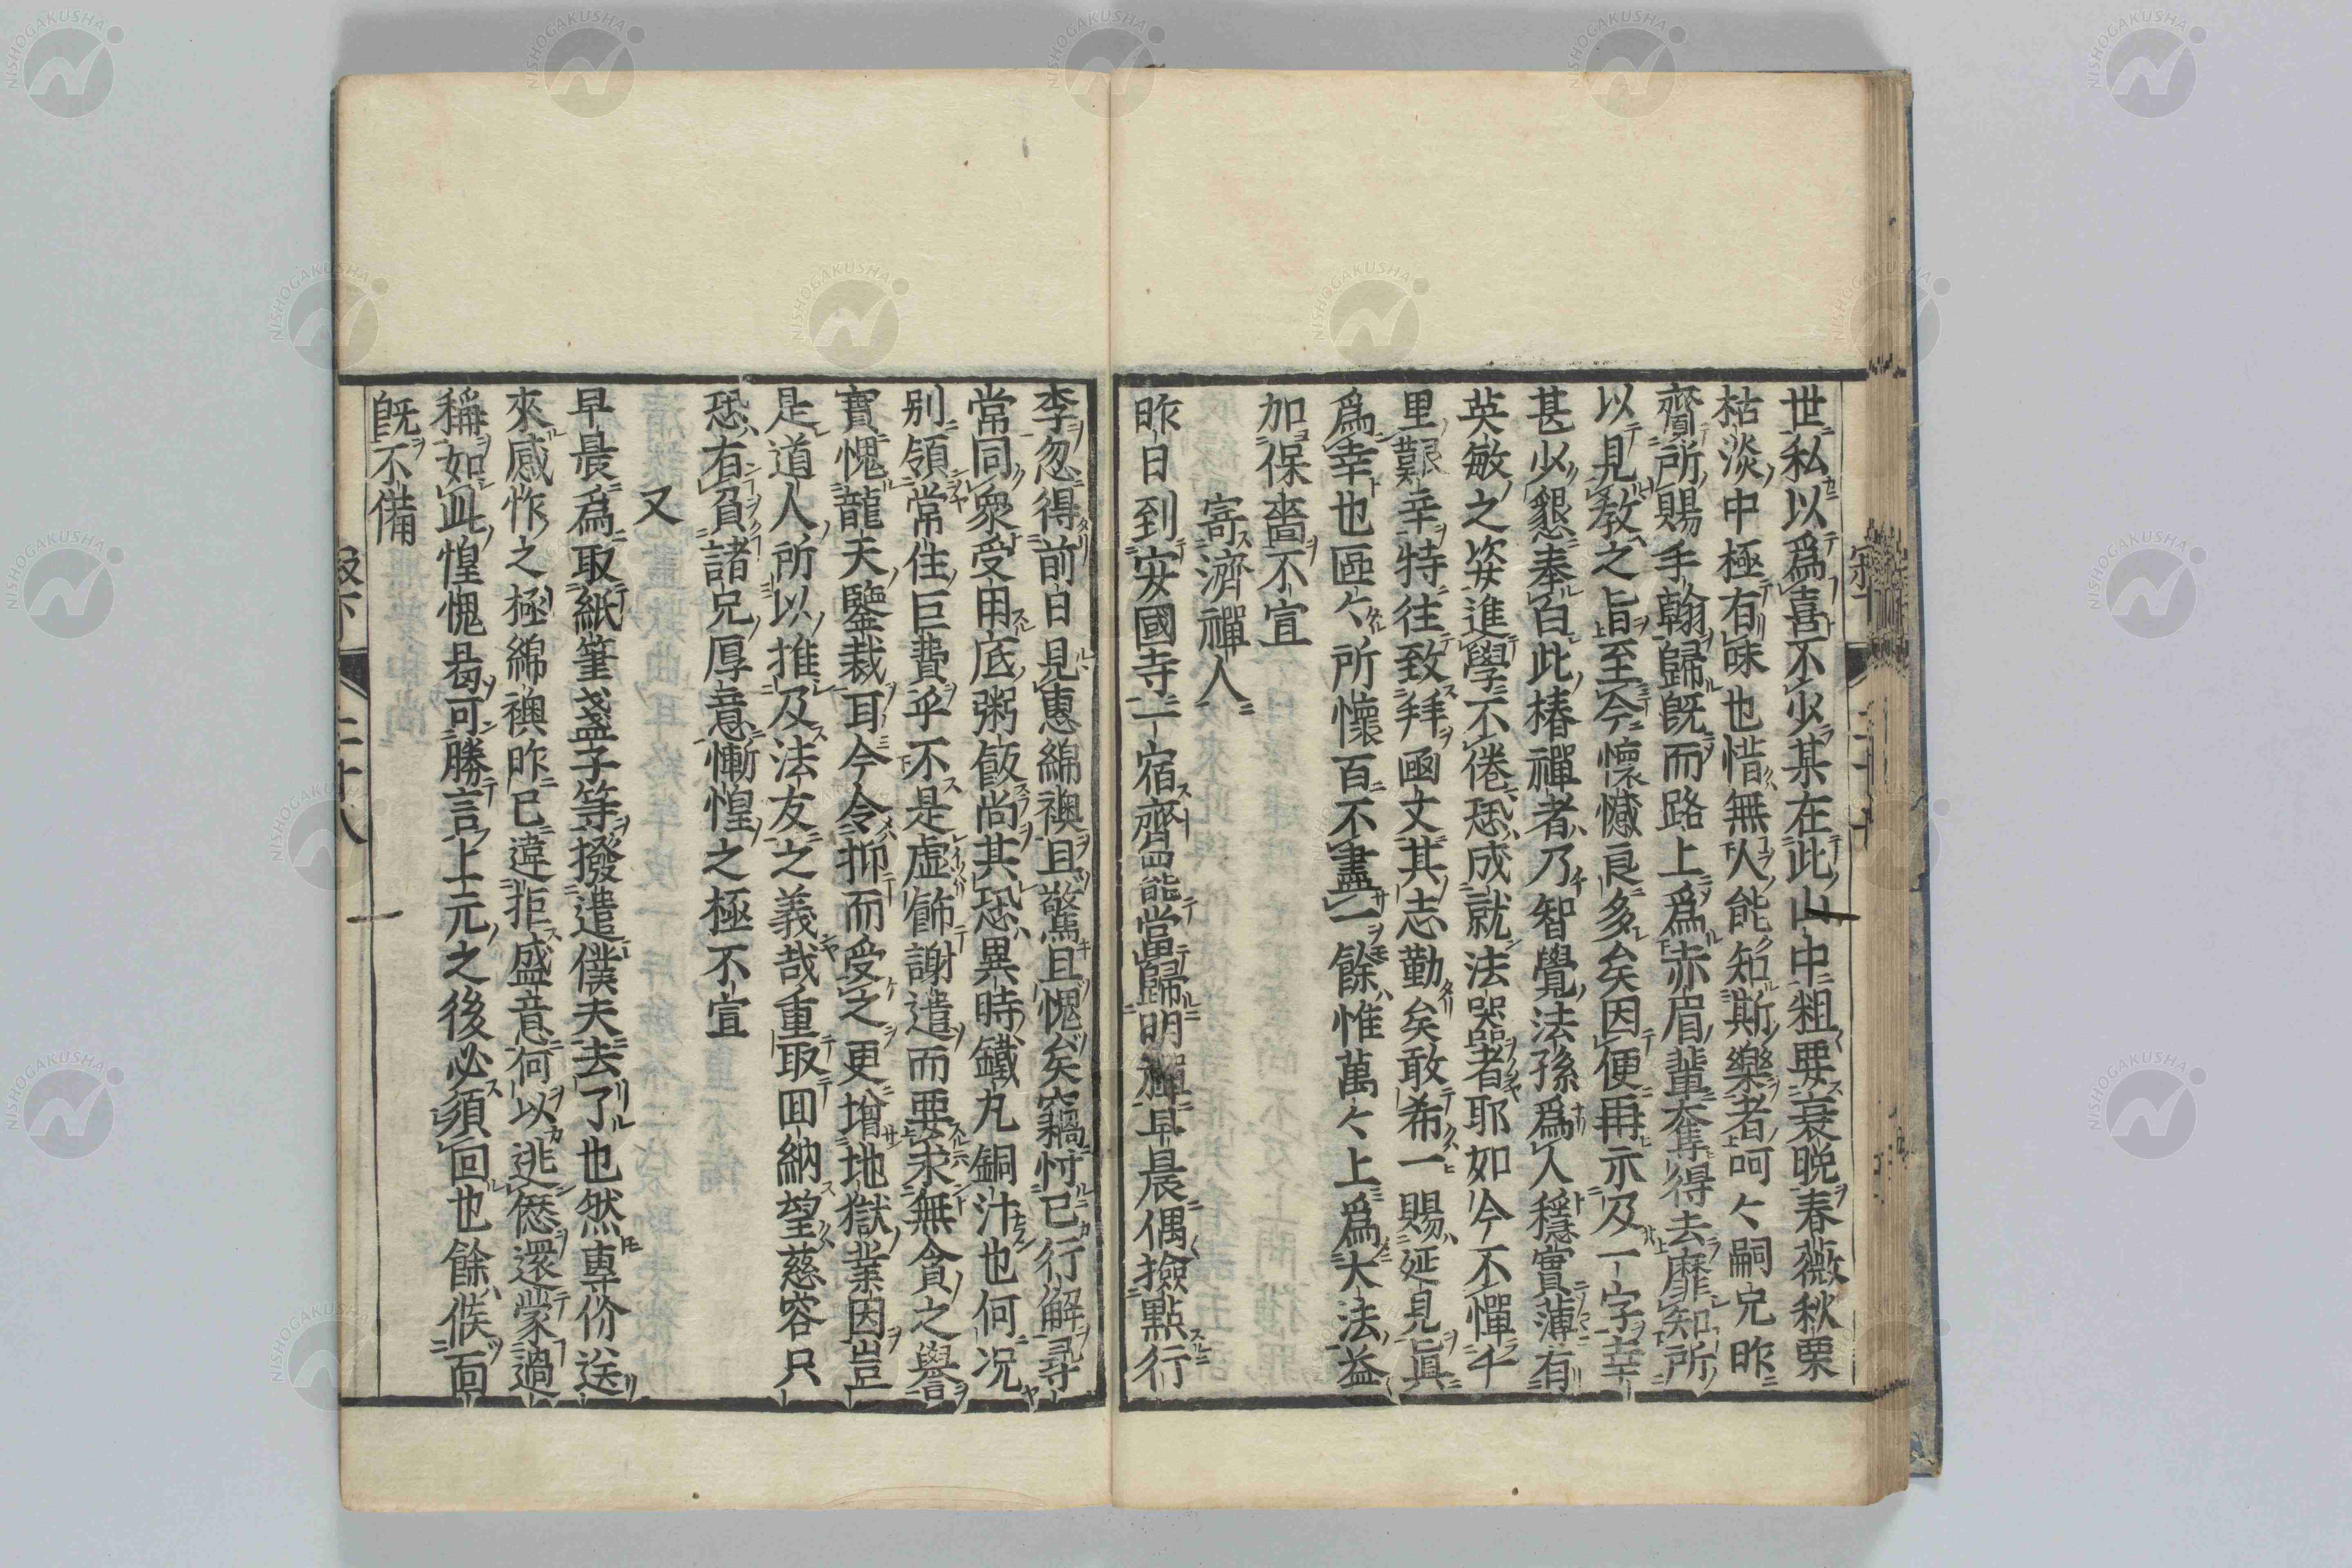 世私以爲喜不少某在此山中粗要衰晩春薇秋栗
枯淡中極有味也惜無人能知斯樂者呵々嗣兄昨
齎所賜手翰歸既而路上爲赤眉輩奪得去靡知所
以見教之旨至今懷憾良多矣因便再示及一字幸
甚少懇奉白此椿禪者乃智覺法孫爲人穩實薄有
英敏之姿進學不倦恐成就法器者耶如今不憚千
里艱辛特往致拜函文其志勤矣敢希一賜延見眞
爲幸也區々所懷百不盡一餘惟萬々上爲大法益
加保嗇不宣
寄濟禪人
昨日到安國寺一宿齊罷當歸明禪早晨偶撿點行
李忽得前日見惠綿襖且驚且愧矣竊忖已行解尋
常同衆受用底粥飯尚其恐異時鐵丸銅汁也何况
別領常住巨費乎不是虛飾謝遣而要求無貪之譽
寶愧龍天鑒裁耳今令抑而受之更增地獄業因豈
是道人所以推及法友之義哉重取回納望慈容只
恐有負諸兄厚意慚惶之極不宣
又
早晨爲取紙筆盞子等撥遣僕夫去了也然專价送
來感怍之極綿襖昨已違拒盛意何以逃愆還蒙過
稱如此惶愧曷可勝言上元之後必須回也餘候面
既不備
二十八
NISHOGAKUSHA